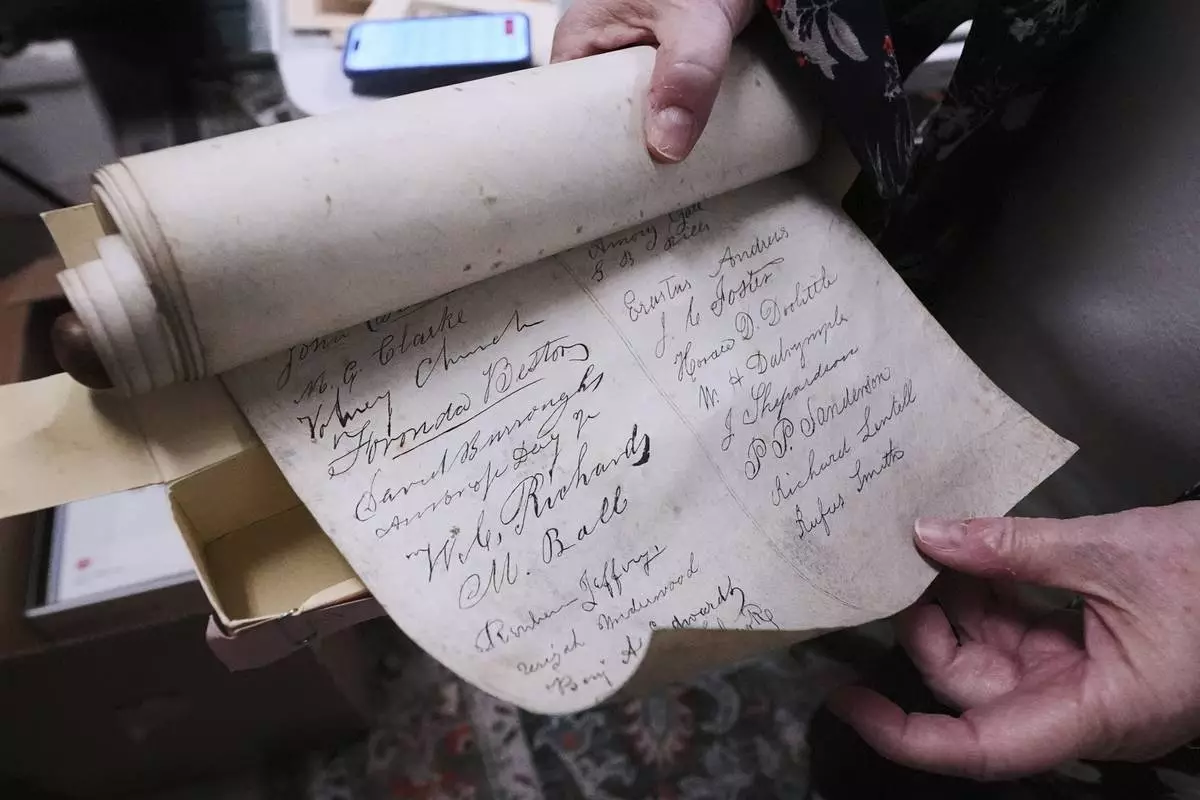 John
N. G. Clarke
Volney Church
Foronda Bestor
David Burroughs
Ambrose Day Jr
W. C. Richards
M. Ball
Reuben Jeffery
Underwood
Benj A Edwards
Amory Gale
G B
Erastus Andrews
J. C Foster
Horace D. Doolittle
W. H Dalrymple
J Shepardson
P. P. Sanderson
Richard Lentell
Rufus Smith